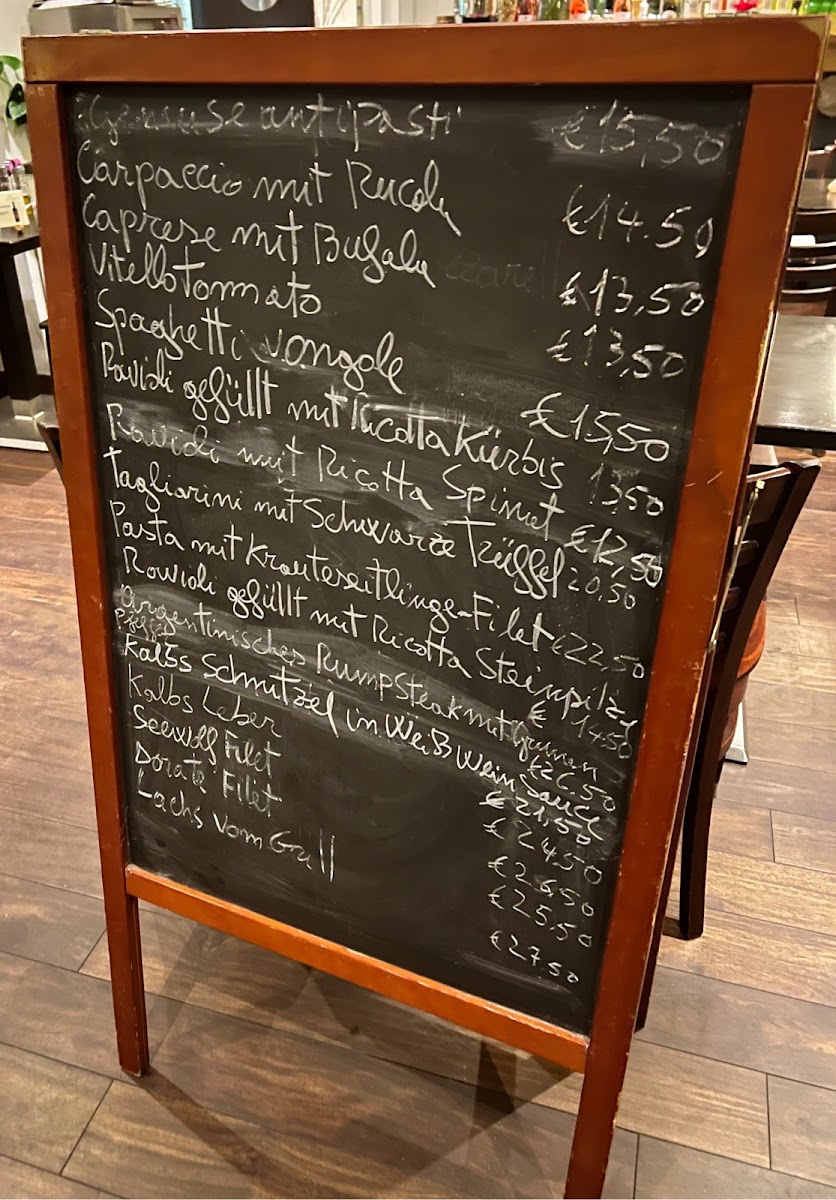 Gemüse antipasti €15,50
Carpaccio mit Rucola €14.50
Caprese mit Bufala €13,50
Vitello Tonnato €13,50
Spaghetti vongole €15,50
Ravioli gefüllt mit Ricotta Kürbis 13,50
Ravioli mit Ricotta Spinat €12,50
Tagliarini mit Schwarze Trüffel 20,50
Pasta mit Kräuterseitlinge-Filet €22,50
Ravioli gefüllt mit Ricotta Steinpilze € 14.50
argentinisches Rumpsteak mit grünen €26.50
Pfeffer
Kalbs Schnitzel in Weißwein Sauce €21,50
Kalbs Leber €24,50
Seewolf Filet €26,50
Dorate Filet €25,50
Lachs vom Grill €27.50